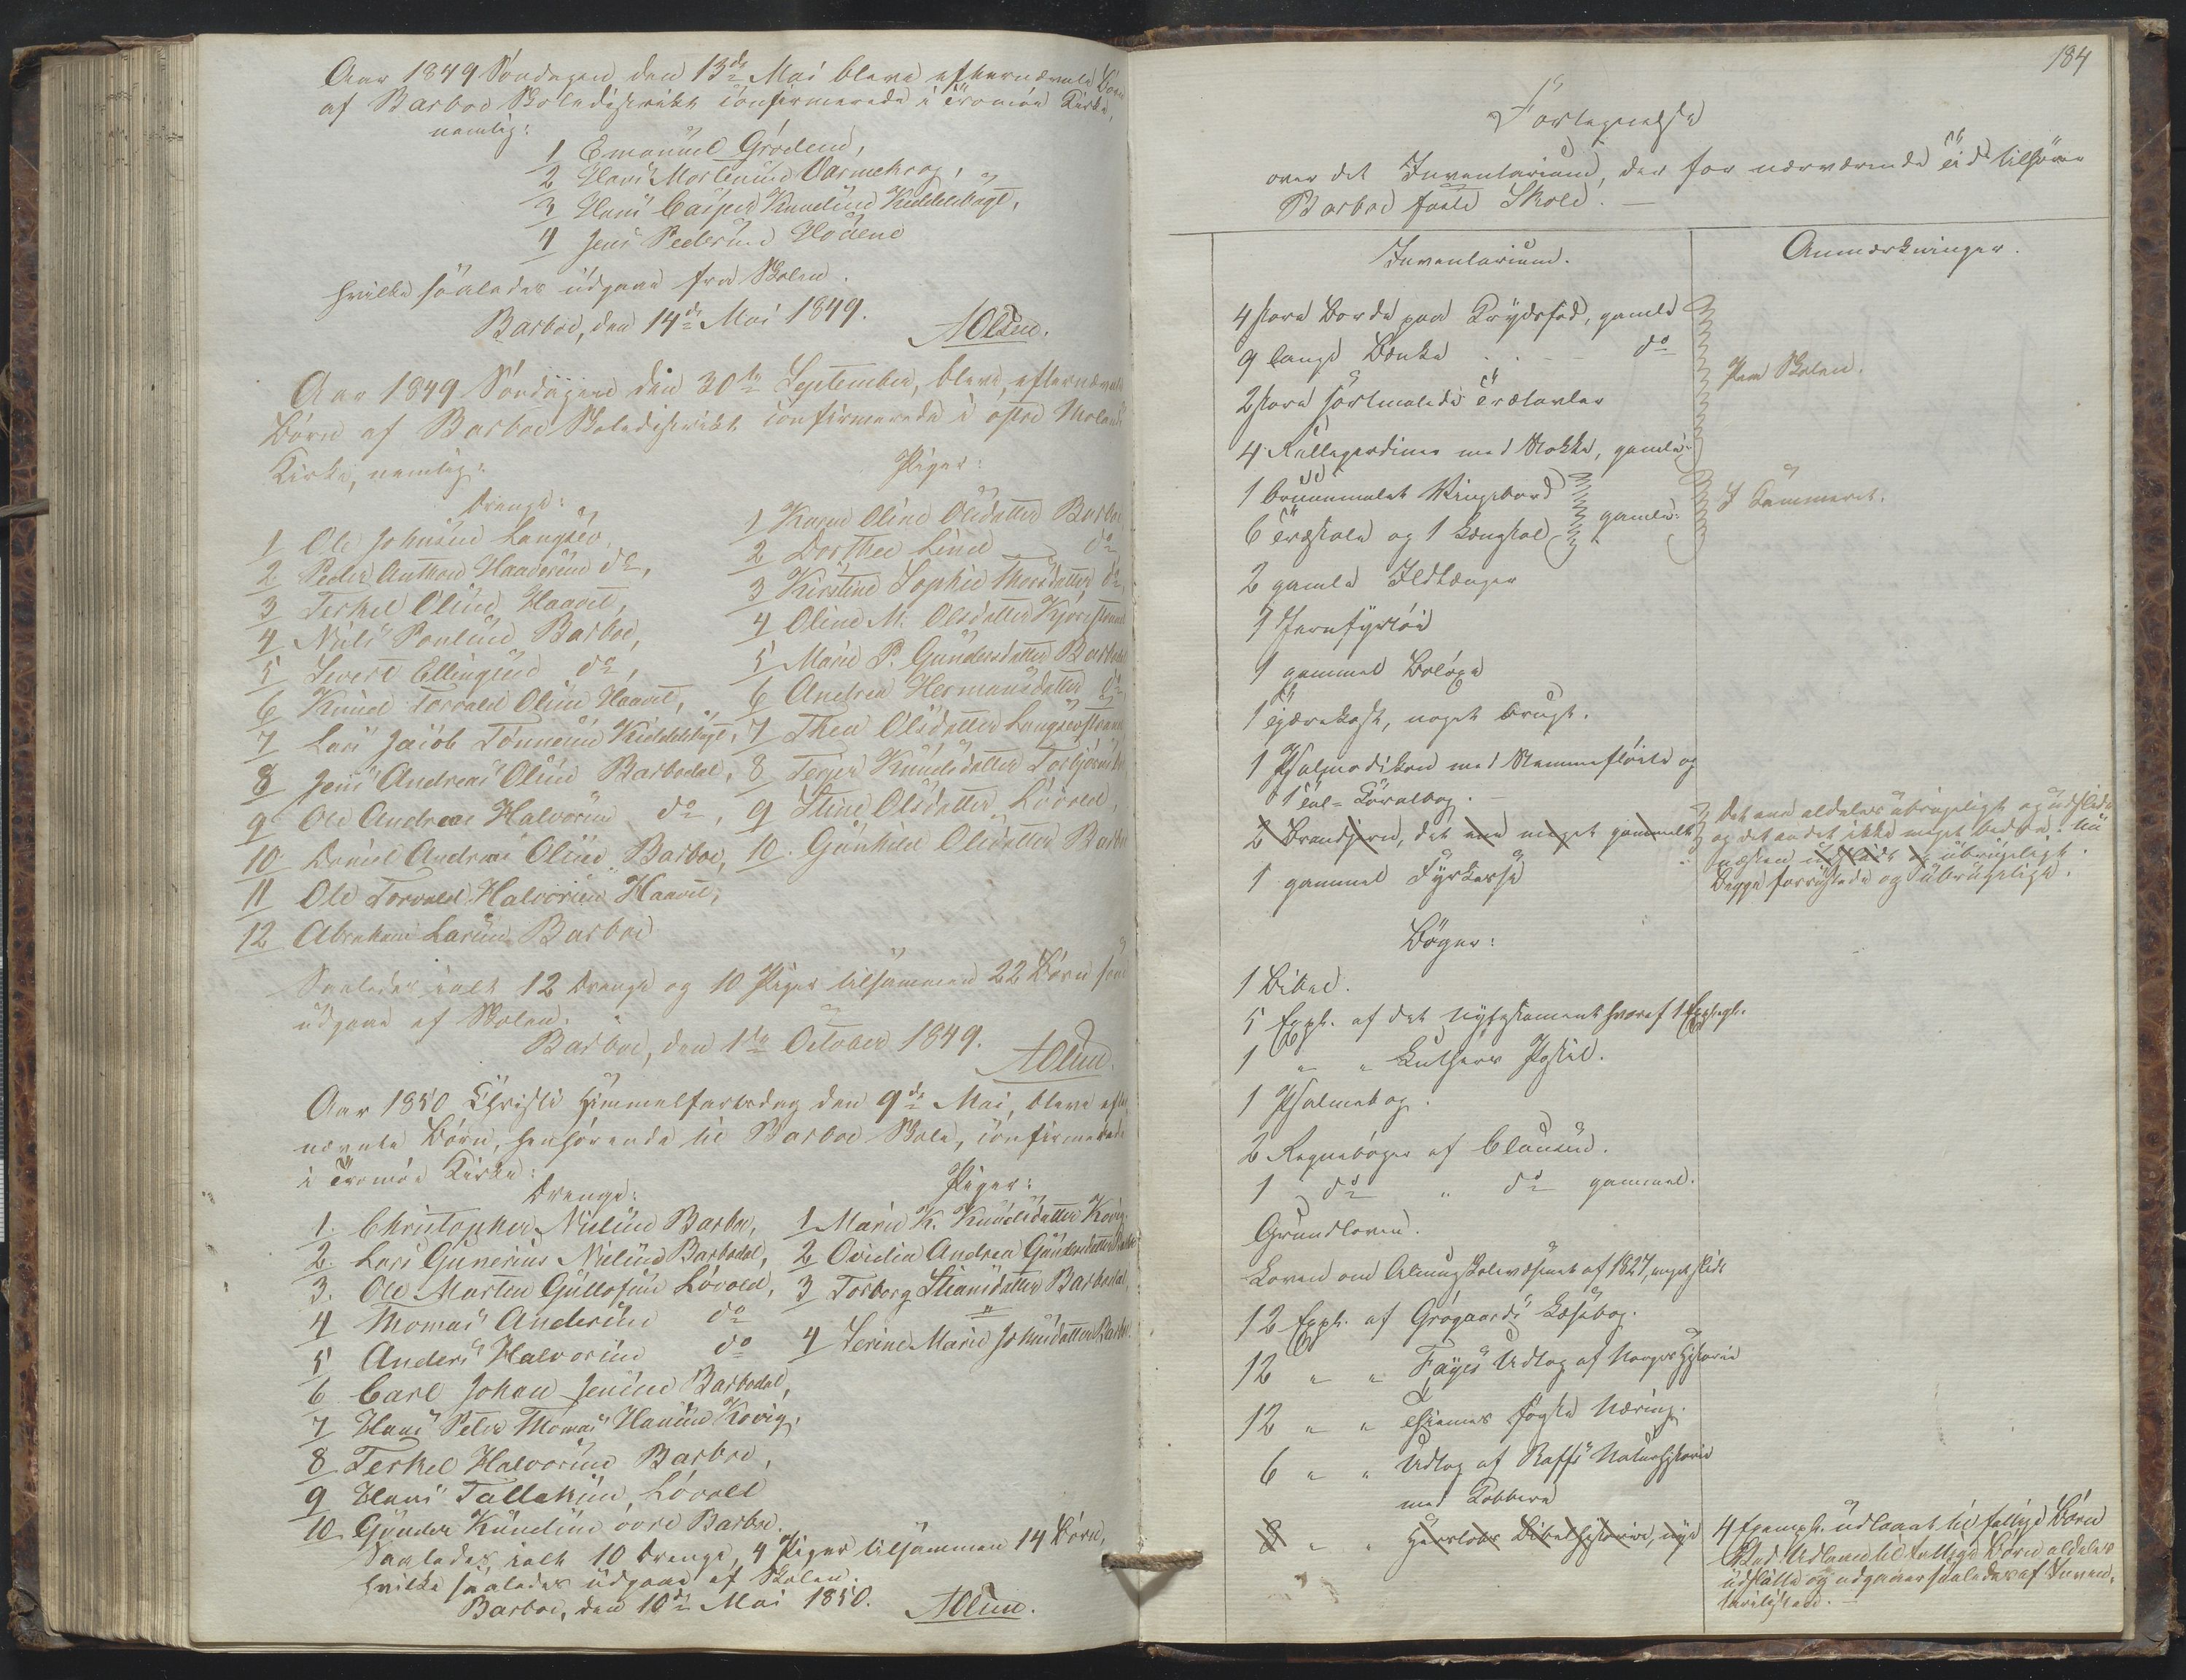 Aar 1849 Søndagen den 13de Mai bleve efternævnte Børn
af Barboe Skoledistrikt confirmerede i Tromøe Kirke,
nemlig:
1 Emanuel Grødem,
2 Hans Mortensen Varmekrog,
3 Hans Casper Knudsen Kiddelsbagt,
4 Jens Pedersen Hodene
hvilke saaledes udgaae fra Skolen.
Barboe, den 14de Mai 1849.
AOlsen.
Aar 1849 Søndagen den 30te September, bleve, efternævnte
Børn af Barboe Skoledistrikt confirmerede i østre Molands
Kirke, nemlig:
Drenge:
1 Ole Johnsen Langsev,
2 Peder Anthon Haaversen do,
3 Terkel Olsen Haavet,
4 Niels Poulsen Barboe,
5 Sivert Ellingsen do,
6 Knud Torvald Olsen Haavet,
7 Lars Jacob Tønnesen Kiddelsbagt,
8 Jens Andreas Olsen Barbodal,
9 Ole Andreas Halvorsen do,
10 Daniel Andreas Olsen Barboe,
11 Ole Torvald Halvorsen Haavet,
12 Abraham Larsen Barboe
Piger:
1 Karen Oline Olsdatter Barboe
2 Dorthea Lind do
3 Kirstine Sophie Thorsdatter do,
4 Oline M. Olsdatter Kjørestrand
5 Maren P. Gundersdatter Barbodal
6 Andrea Hermansdatter do,
7 Thea Olsdatter Langsevstrand
8 Terjer Knudsdatter Torbjørnsbu
9 Stine Olsdatter Løvold,
10. Gunhild Olsdatter Barboe
Saaledes ialt 12 Drenge og 10 Piger tilsammen 22 Børn som
udgaae af Skolen.
Barboe, den 1ste October 1849.
AOlsen.
Aar 1850 Christi Himmelfartsdag den 9de Mai, bleve efter-
nævnte Børn, henhørende til Barboe Skole, confirmerede
i Tromøe Kirke:
Drenge:
1. Christopher Nielsen Barboe,
2. Lars Gunerius Nielsen Barbodal,
3. Ole Martin Gullofsen Løvold,
4 Thomas Andersen do
5 Anders Halvorsen do
6 Carl Johan Jensen Barbodal,
7 Hans Peter Thomas Hansen Kovig,
8 Terkel Halvorsen Barboe,
9 Hans Tallaksen, Løvold
10 Gunder Knudsen øvre Barboe.
Piger:
1 Maren K. Knudsdatter Kovig.
2 Ovidia Andrea Gundersdatter Barboe
3 Torborg Stiansdatter Barbodal,
4 Serine Marie Johnsdatter Barboe.
Saaledes ialt 10 Drenge, 4 Piger tilsammen 14 Børn,
hvilke saaledes udgaae af Skolen.
Barboe, den 10de Mai 1850.
AOlsen.
184
Fortegnelse
over det Inventarium, der for nærværende Tid tilhører
Barboe faste Skole.
Inventarium.
Anmærkninger.
4 store Borde paa Krydsfod, gamle
9 lange Bænke do
2 store sortmalede Trætavler
4 Rullegardiner med Stokke, gamle
Paa Skolen.
1 bruunmalet Vingebord
6 Træstole og 1 Længstol
gamle
I Kammeret.
2 gamle Ildtænger
1 Jernfyrtøi
1 gammel Boløxe
1 Tjærekost, noget brugt.
1 Psalmodikon med Stemmefløite og
1 Tal-Koralbog.
2 Brandjern, det ene meget gammelt
Det ene aldeles ubrugeligt og udslidt
og det andet ikke meget bedre. nu
næsten udslidt og ubrugeligt.
Begge forrustede og ubrugelige.
1 gammel Fyrkasse
Bøger:
1 Bibel.
5 Expl. af det nye Testament hvoraf 1 Expl. gl.
1 " " Luthers Postil.
1 Psalmebog.
2 Regnebøger af Clausen.
1 do " do gammel.
Grundloven.
Loven om Almueskolevæsenet af 1827, meget slidt
12 Expl. af Grøgaards Læsebog.
12 " " Fayes Udtog af Norges Historie
12 " " Thiemes første Næring.
6 " " Udtog af Raffs Naturhistorie
med Kobbere
8 " " Herslebs Bibelhistorie, nye
4 Exempl. udlaant til fattige Børn
Ved Udlaan til fattige Børn aldeles
udslidte og udgaaer saaledes af Inven-
tarielisten.